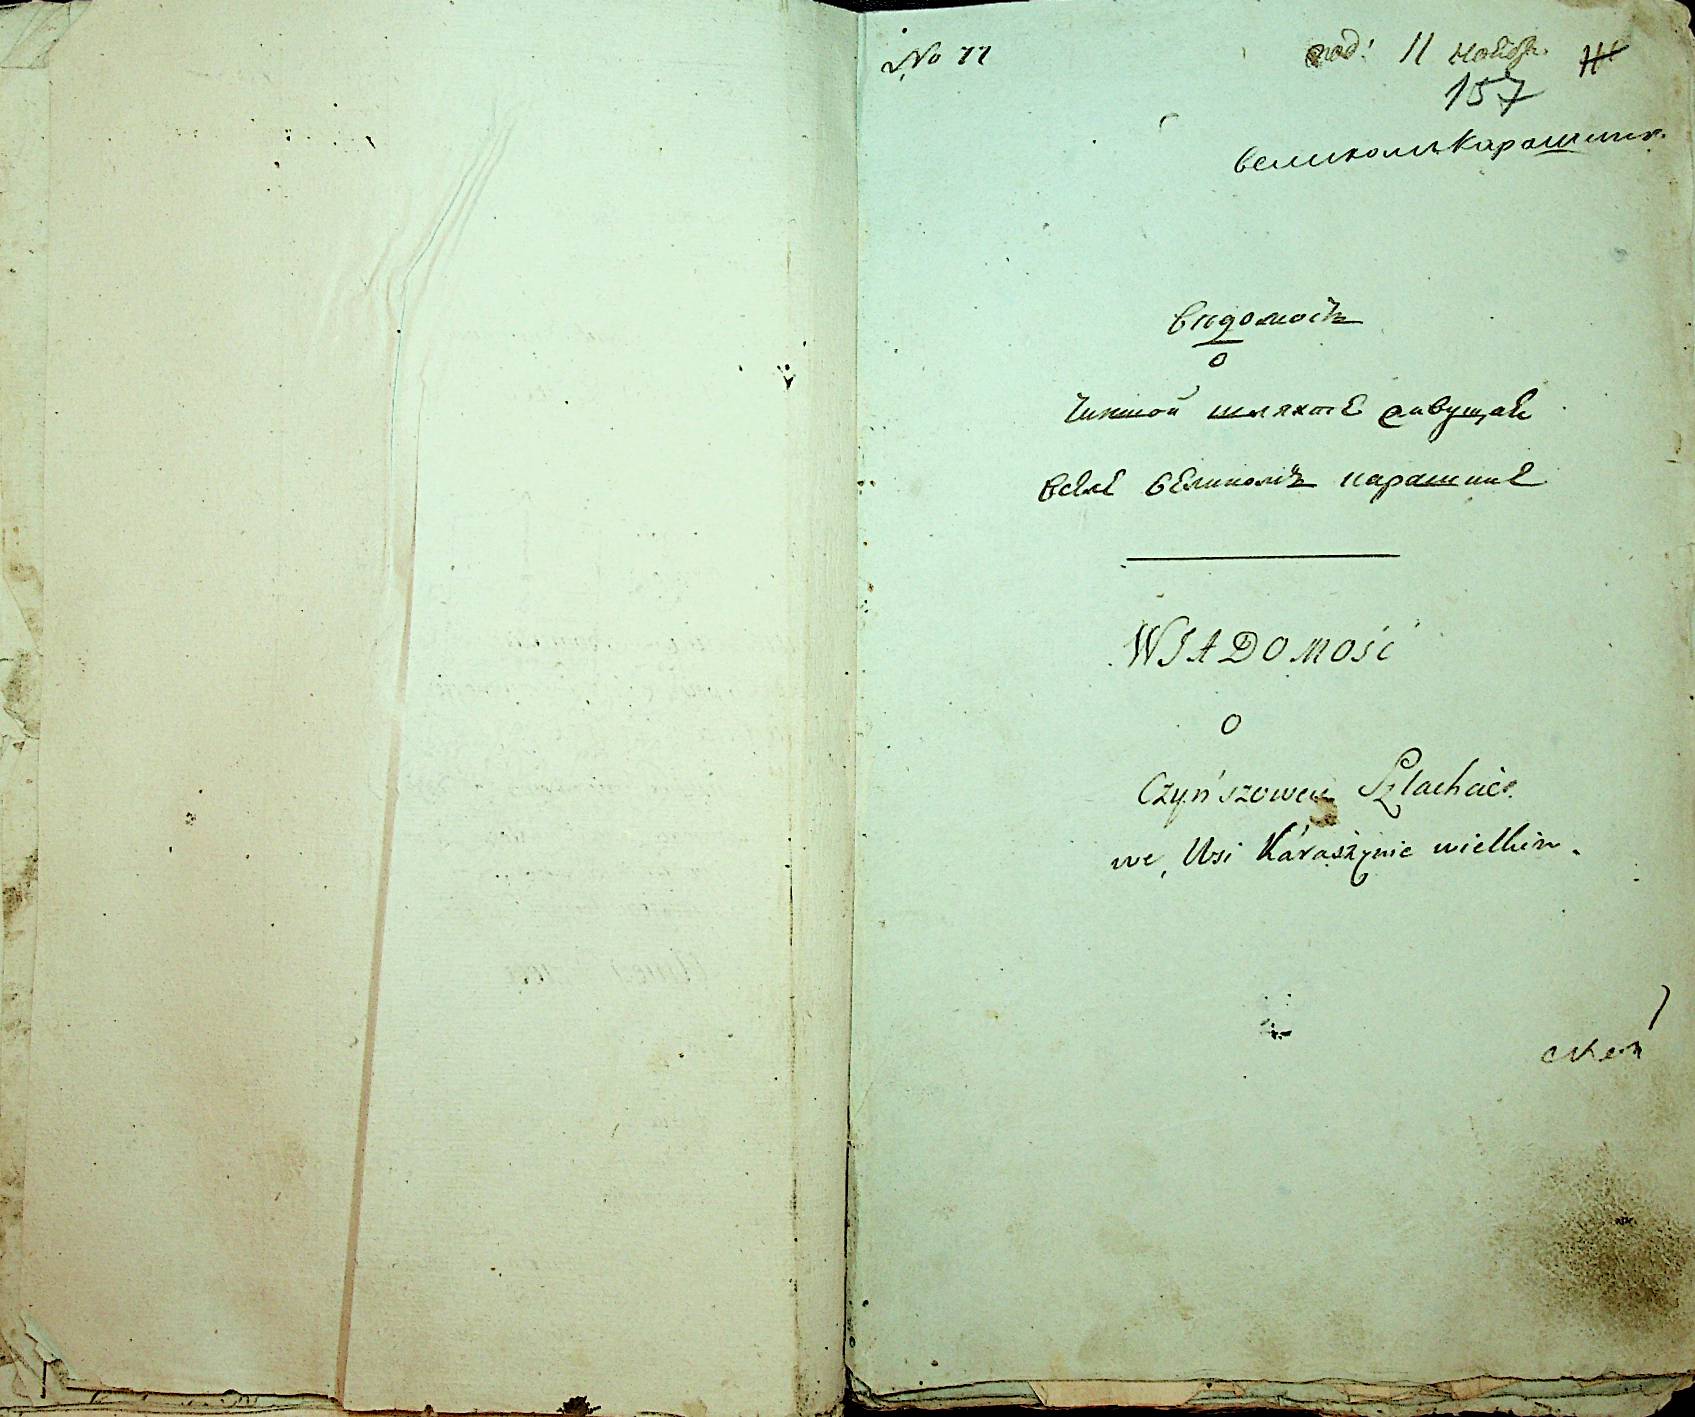 No 11
под: 11 ноября
157
великом Карашине.
видомость
о
чиншой шляхтѣ живущей
вселѣ великомъ карашинѣ
WIADOMOSĆ
o
Czyńszowéy Szlachcie
we, Wsi Karaszynie wielkim.